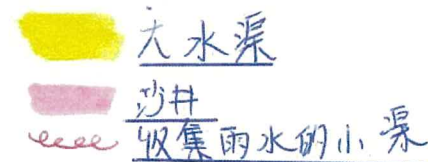 大水渠
沙井
收集雨水的小渠